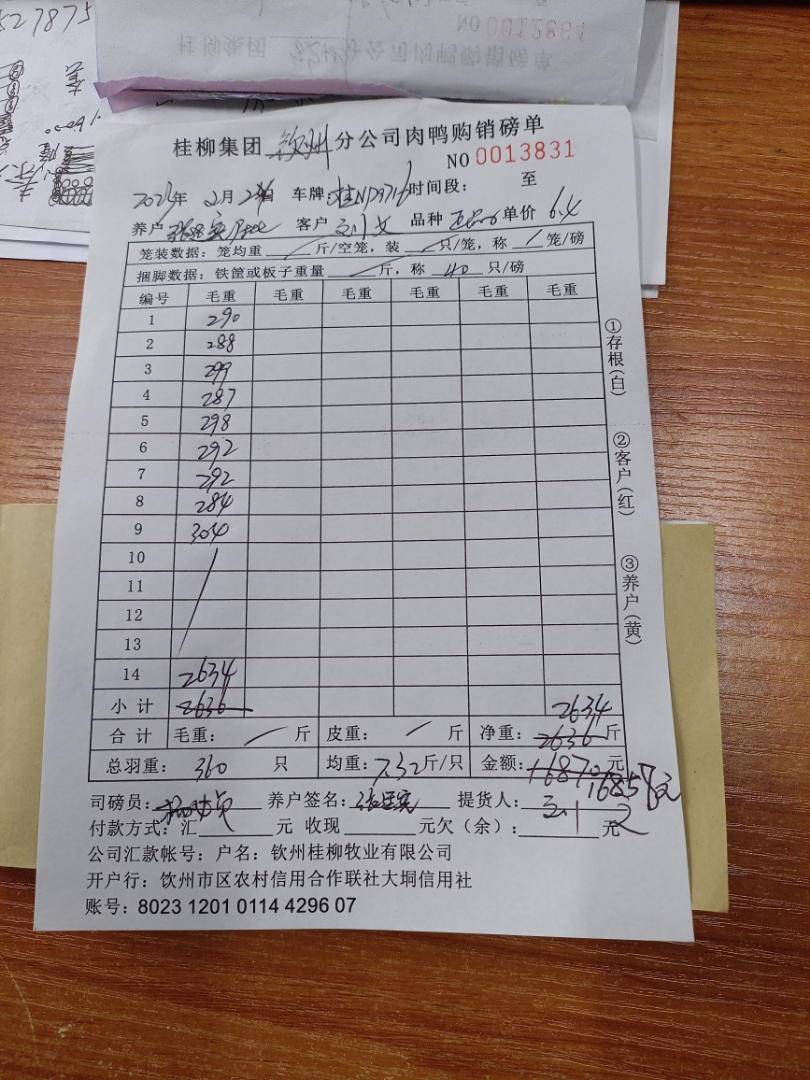 527875
NO 0012881
桂柳集团 钦州 分公司肉鸭购销磅单
桂柳集团 钦州 分公司肉鸭购销磅单
NO 0013831
年 2月 2 日 车牌: 桂ND9716 时间段: 至
养户 客户 品种 单价 6.4
笼装数据: 笼均重 / 斤/空笼, 装 / 只/笼, 称 / 笼/磅
捆脚数据: 铁筐或板子重量 / 斤, 称 40 只/磅
编号 毛重 毛重 毛重 毛重 毛重 毛重
1 290
2 288
3 299
4 287
5 298
6 292
7 292
8 284
9 304
10 /
11
12
13
14 2634
小计 2636 2634
合计 毛重: / 斤 皮重: / 斤 净重: 2636 斤
总羽重: 360 只 均重: 7.32 斤/只 金额: 16870 元
16857元
司磅员: 养户签名: 提货人:
付款方式: 汇 元 收现 元欠(余): 元
公司汇款帐号: 户名: 钦州桂柳牧业有限公司
开户行: 饮州市区农村信用合作联社大垌信用社
账号: 8023 1201 0114 4296 07
①存根(白)
②客户(红)
③养户(黄)